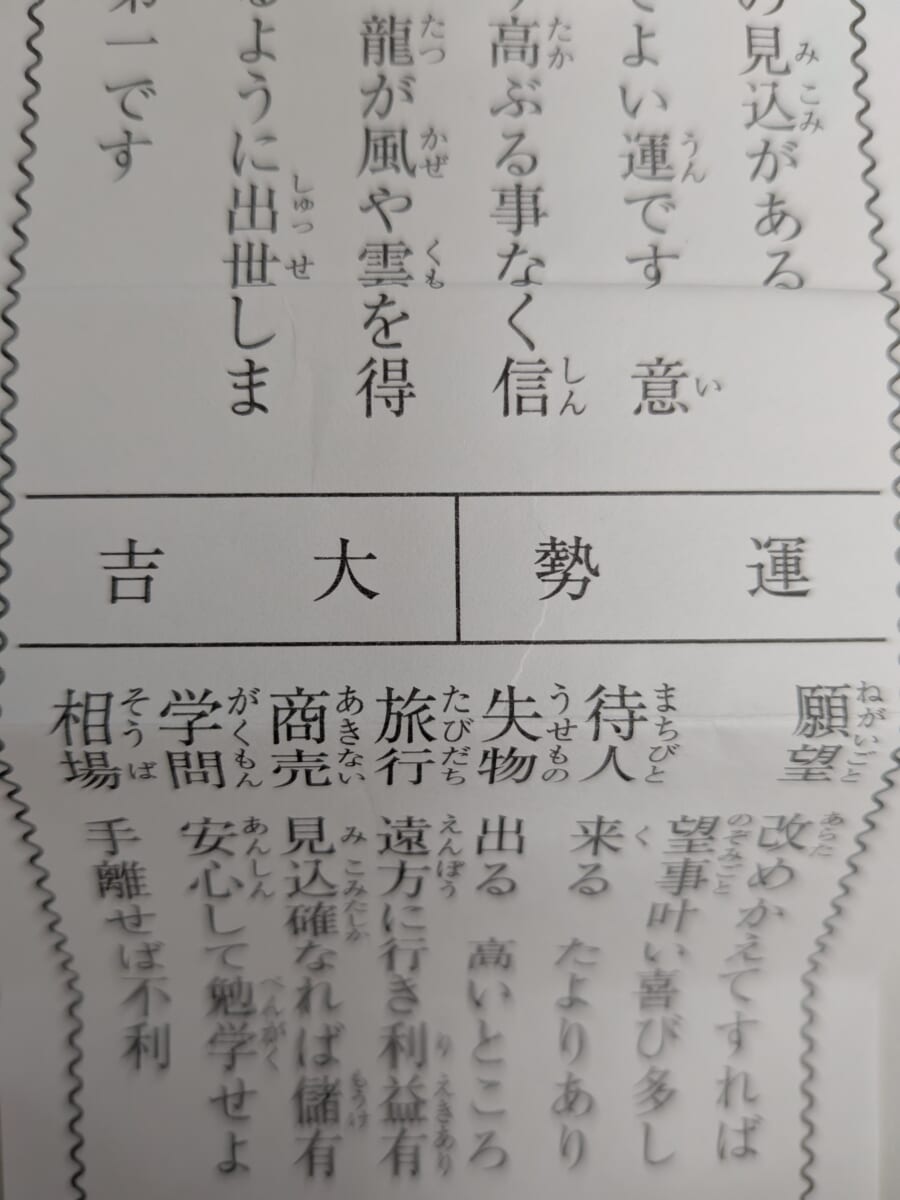 の見込がある
てよい運です 意
高ぶる事なく信
龍が風や雲を得
るように出世しま
第一です
運勢 大吉
願望 改めかえてすれば
望事叶い喜び多し
待人 来る たよりあり
失物 出る 高いところ
旅行 遠方に行き利益有
商売 見込確なれば儲有
学問 安心して勉学せよ
相場 手離せば不利